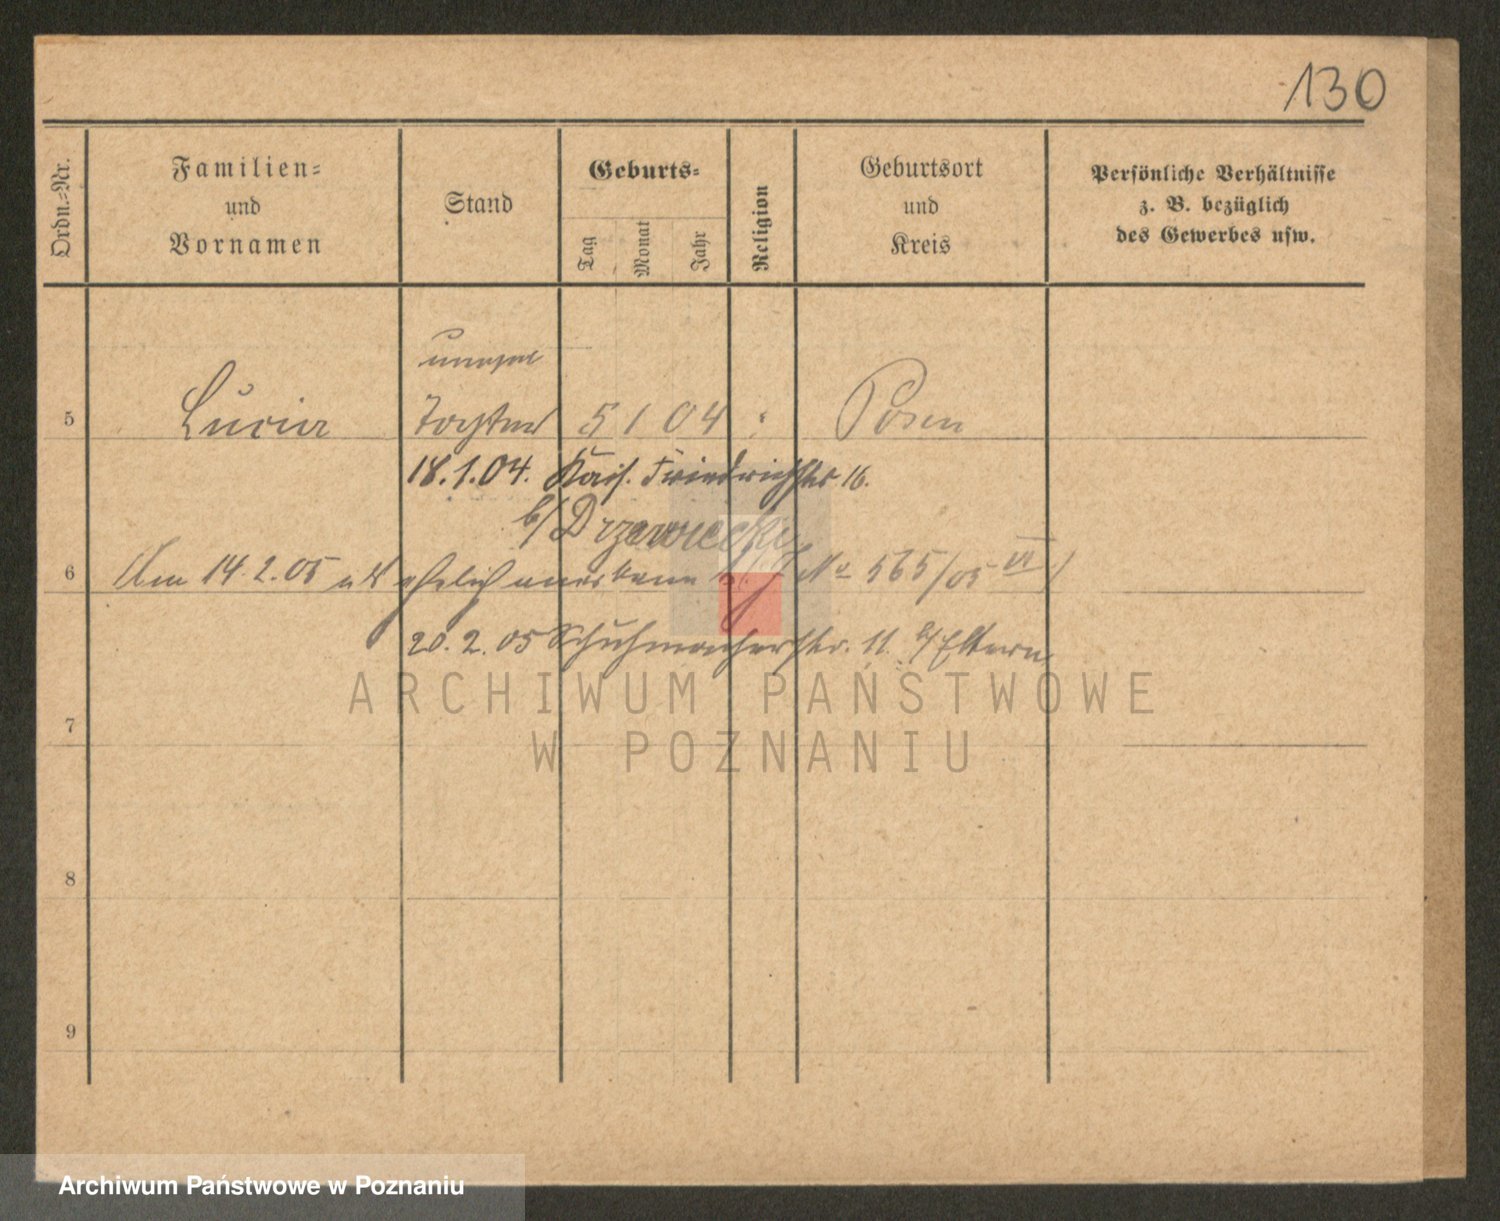 130
Ordn.-Nr.
Familien-
und
Vornamen
Stand
Geburts-
Tag
Monat
Jahr
Religion
Geburtsort
und
Kreis
Persönliche Verhältnisse
z. B. bezüglich
des Gewerbes usw.
unehel
5 Lucia Tochter 5 1 04 Posen
18.1.04. Kais. Friedrichstr 16.
b/ Drzewiecki
6 Am 14.2.05 als ehelich anerkannt No 565/05 VI
20.2.05 Schuhmacherstr. 11. b/ Eltern
ARCHIWUM PAŃSTWOWE
W POZNANIU
7
8
9
Archiwum Państwowe w Poznaniu